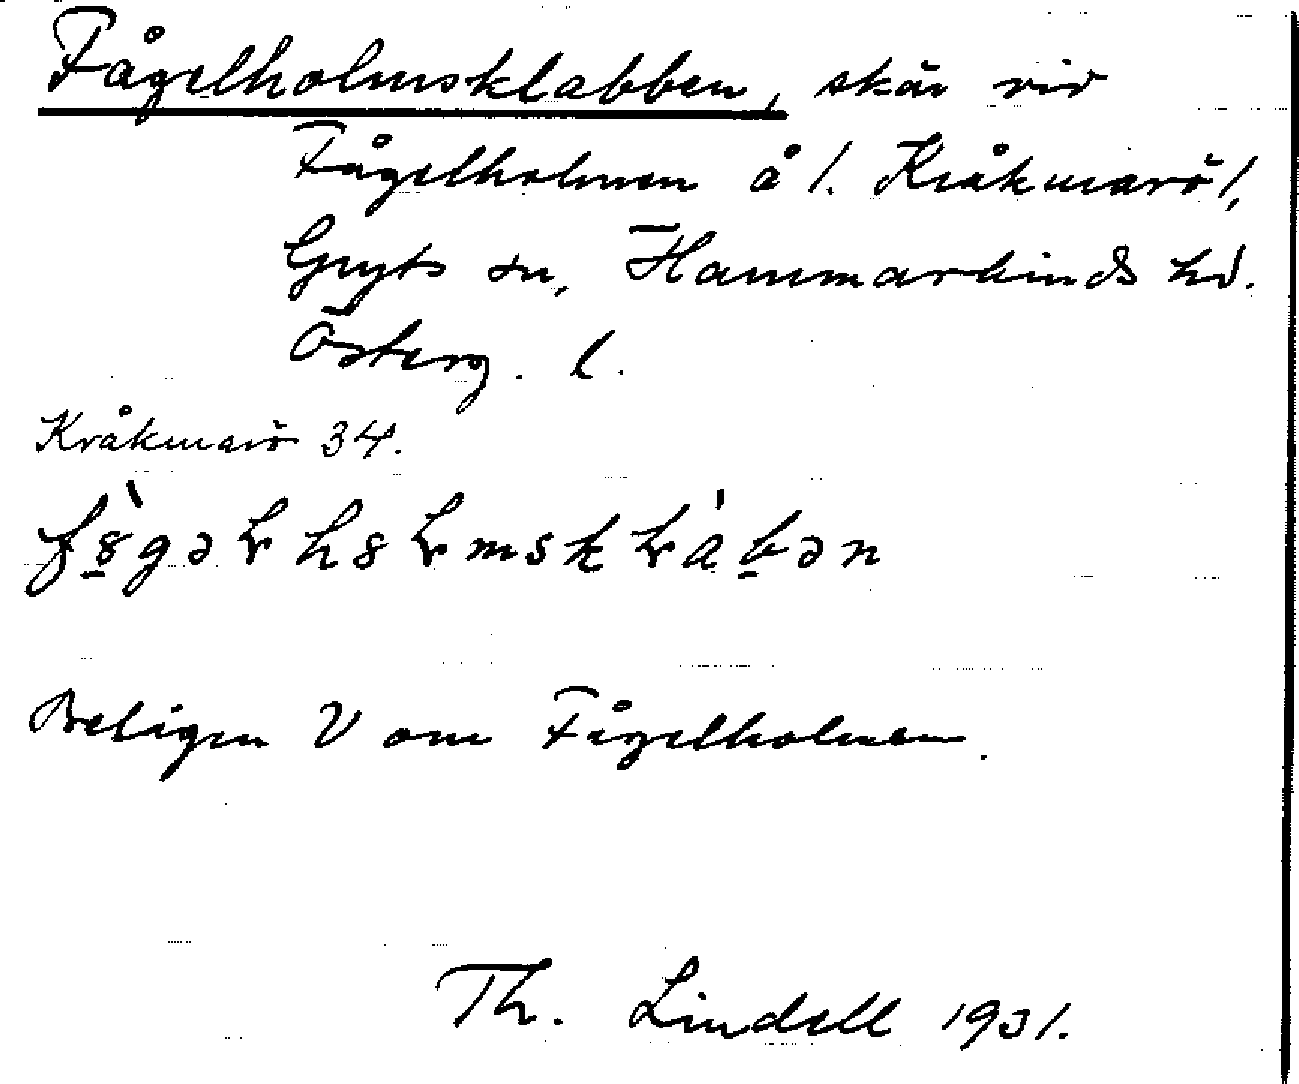 Fågelholmsklabben, skär vid
Fågelholmen å /. Kråkmarö /,
Gryts sn, Hammarkinds hd.
Österg. l.
Kråkmarö 34.
Belägen V om Fågelholmen.
Th. Lindell 1931.